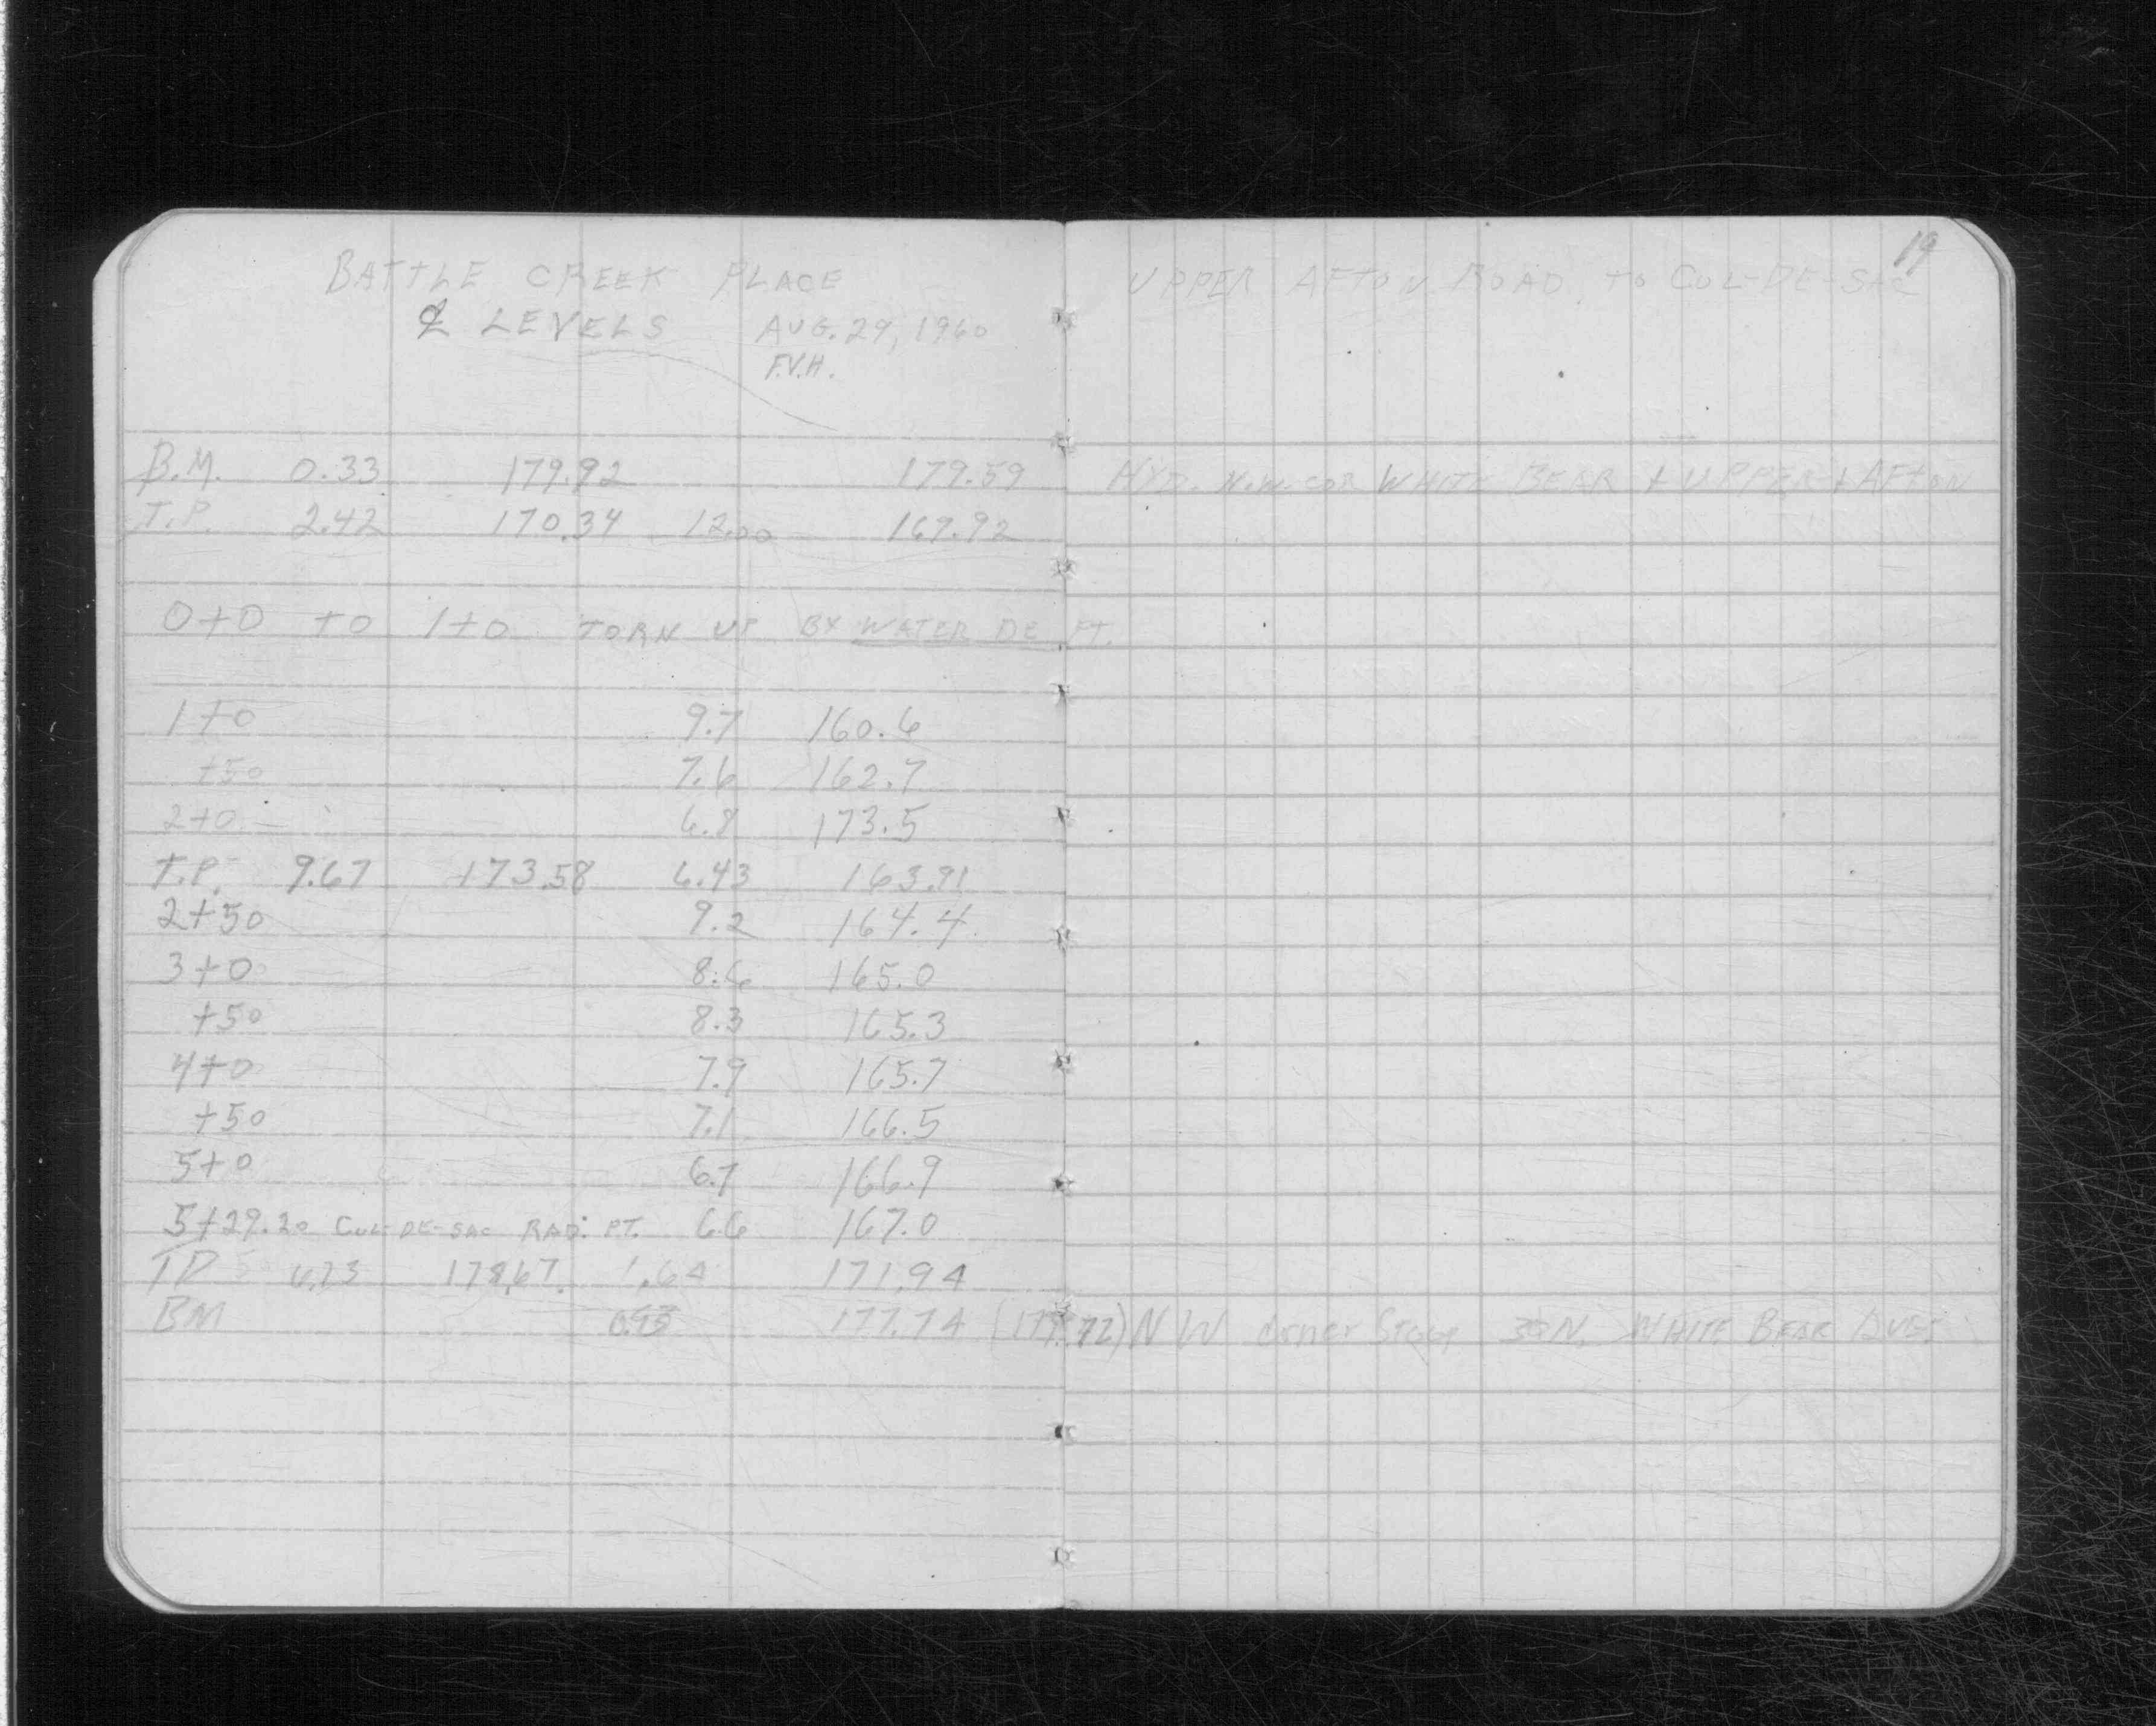 19
BATTLE CREEK PLACE UPPER AFTON ROAD TO CUL-DE-SAC
℄ LEVELS AUG. 29, 1960
F.V.H.
B.M. 0.33 179.92 179.59 HYD. N.W. COR WHITE BEAR + UPPER + AFTON
T.P. 2.42 170.34 12.00 167.92
0+0 TO 1+0 TORN UP BY WATER DEPT.
1+0 9.7 160.6
+50 7.6 162.7
2+0 6.8 173.5
T.P. 9.67 173.58 6.43 163.91
2+50 9.2 164.4
3+0 8.6 165.0
+50 8.3 165.3
4+0 7.9 165.7
+50 7.1 166.5
5+0 6.7 166.9
5+29.20 CUL-DE-SAC RAD. PT. 6.6 167.0
TP 6.73 178.67 1.64 171.94
BM 0.93 177.74 (177.72) N W corner Stoop N. WHITE BEAR AVE.